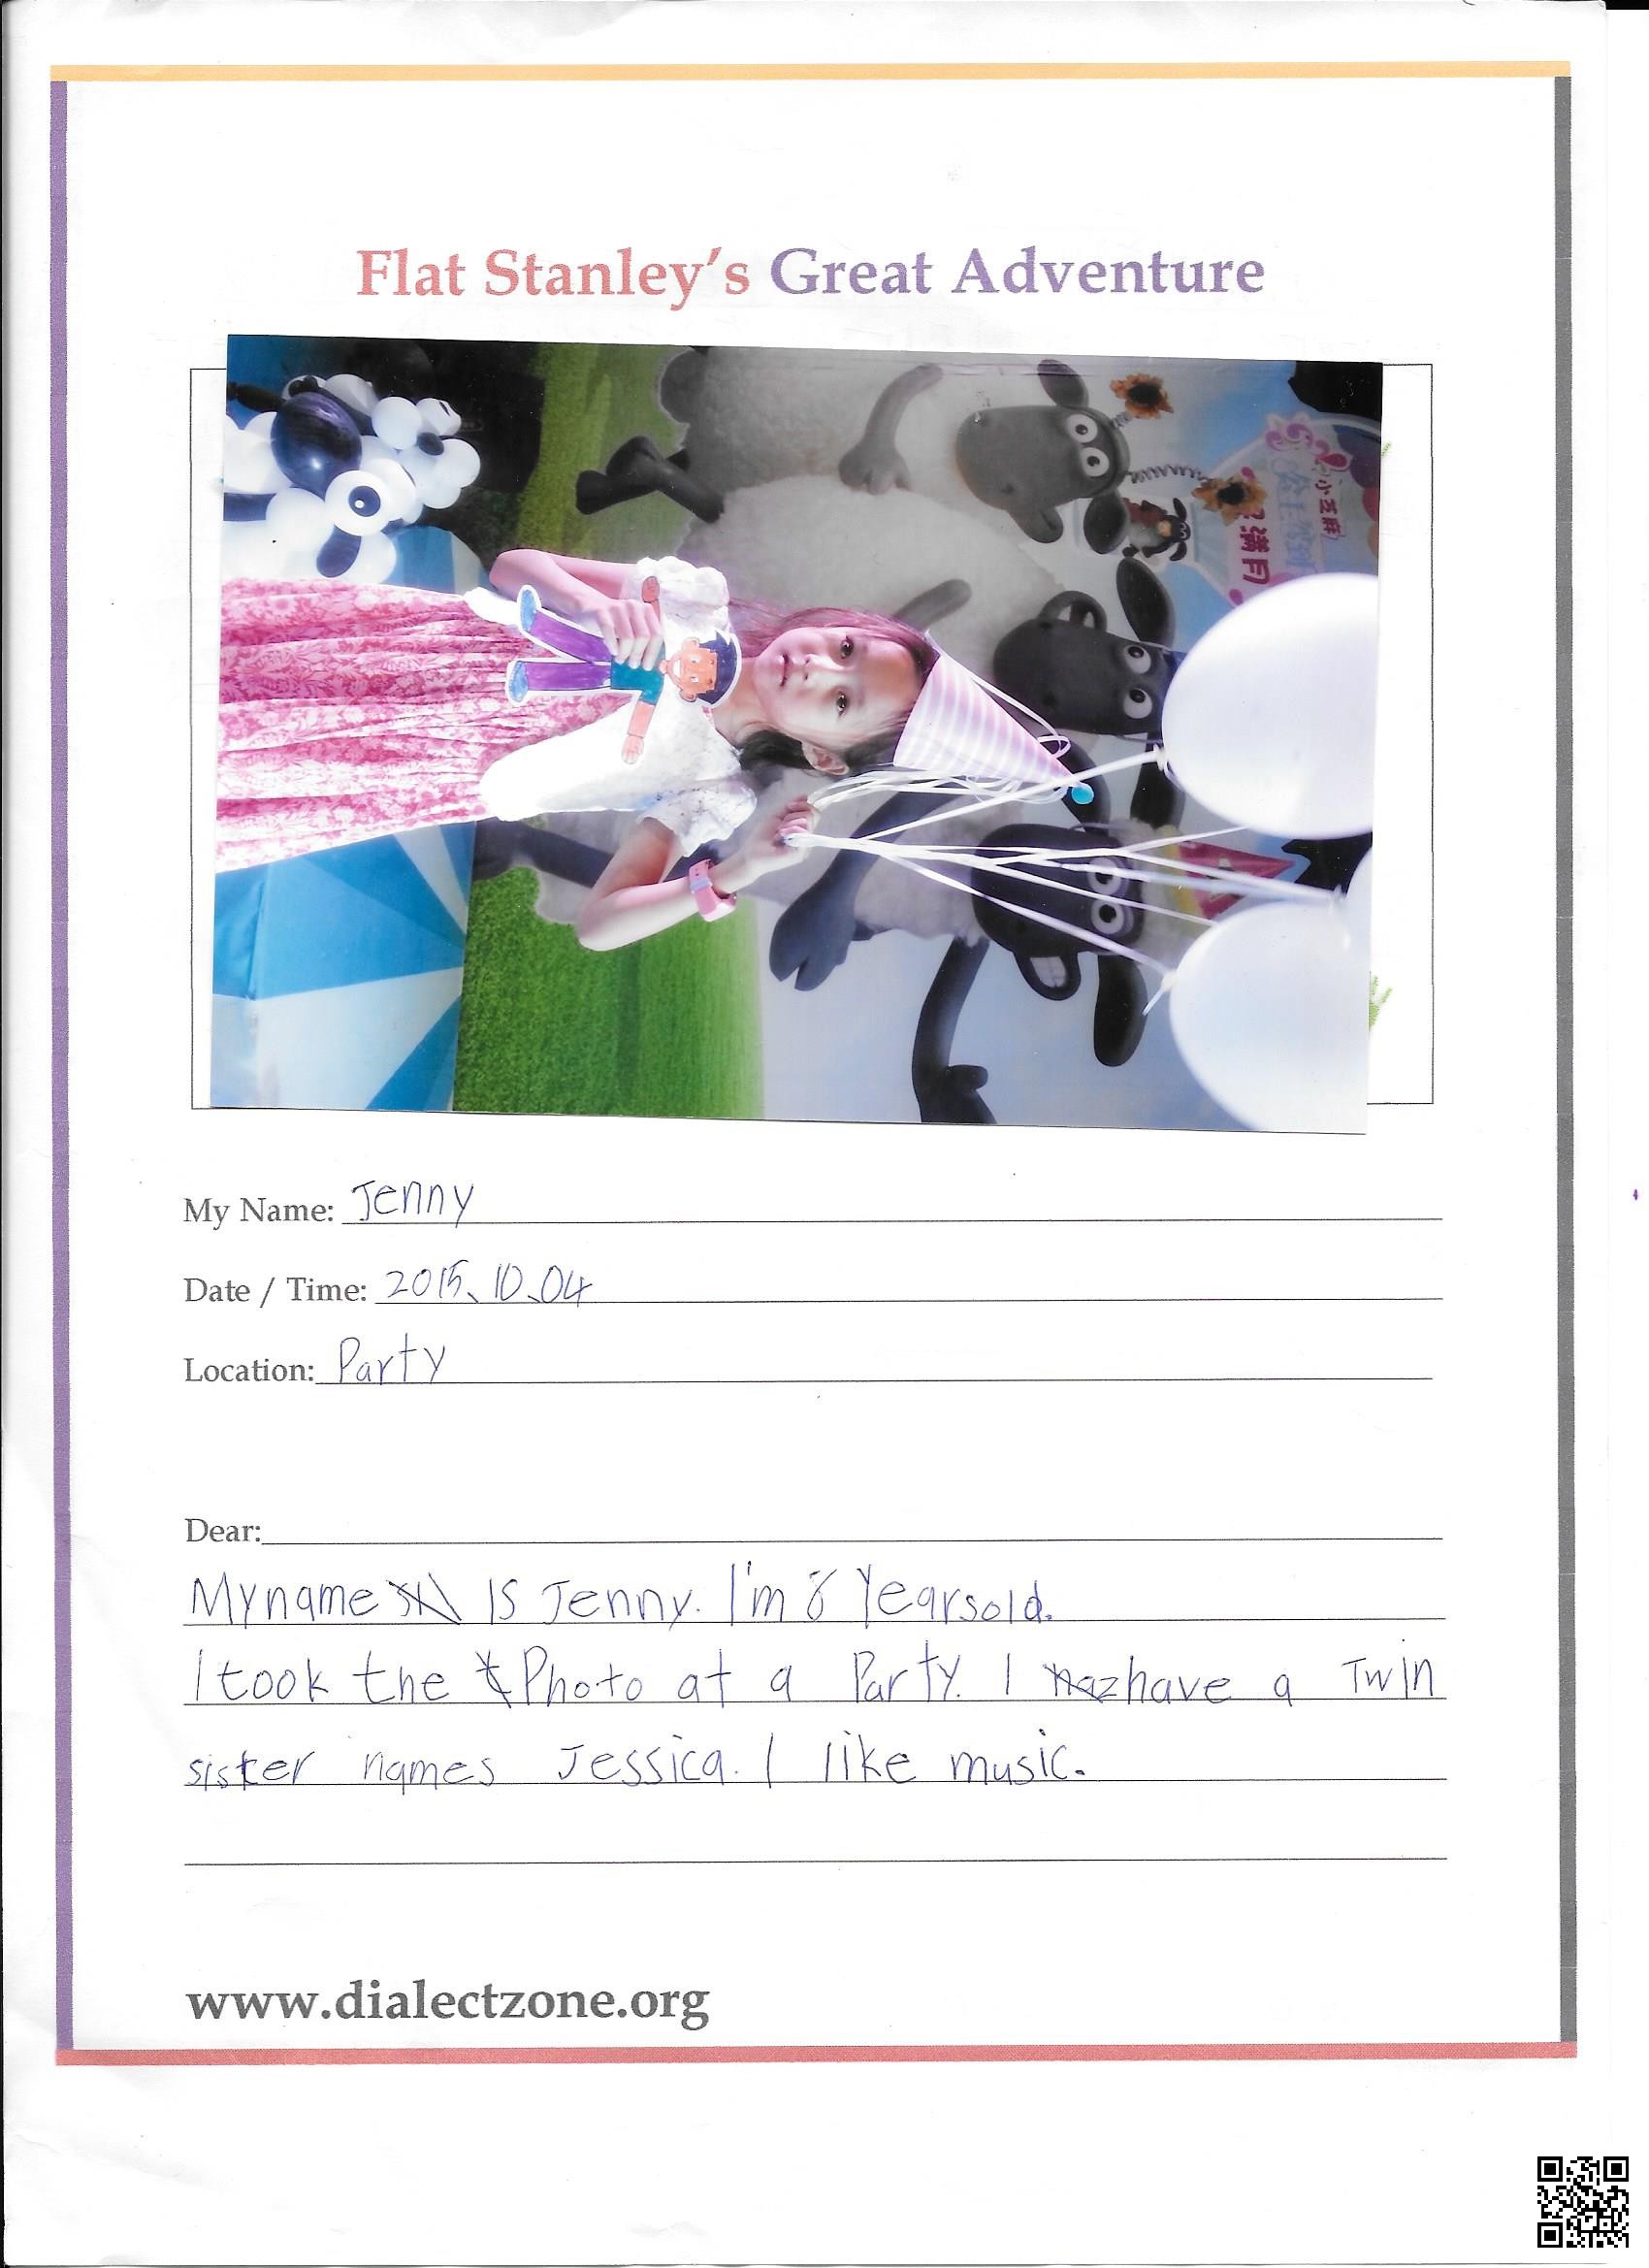 Flat Stanley's Great Adventure
小芝麻
满月
My Name: Jenny
Date / Time: 2015、10、04
Location: Party
Dear:
My name is Jenny. I'm 8 Yearsold.
I took the Photo at a Party. I have a Twin
sister names Jessica. I like music.
www.dialectzone.org